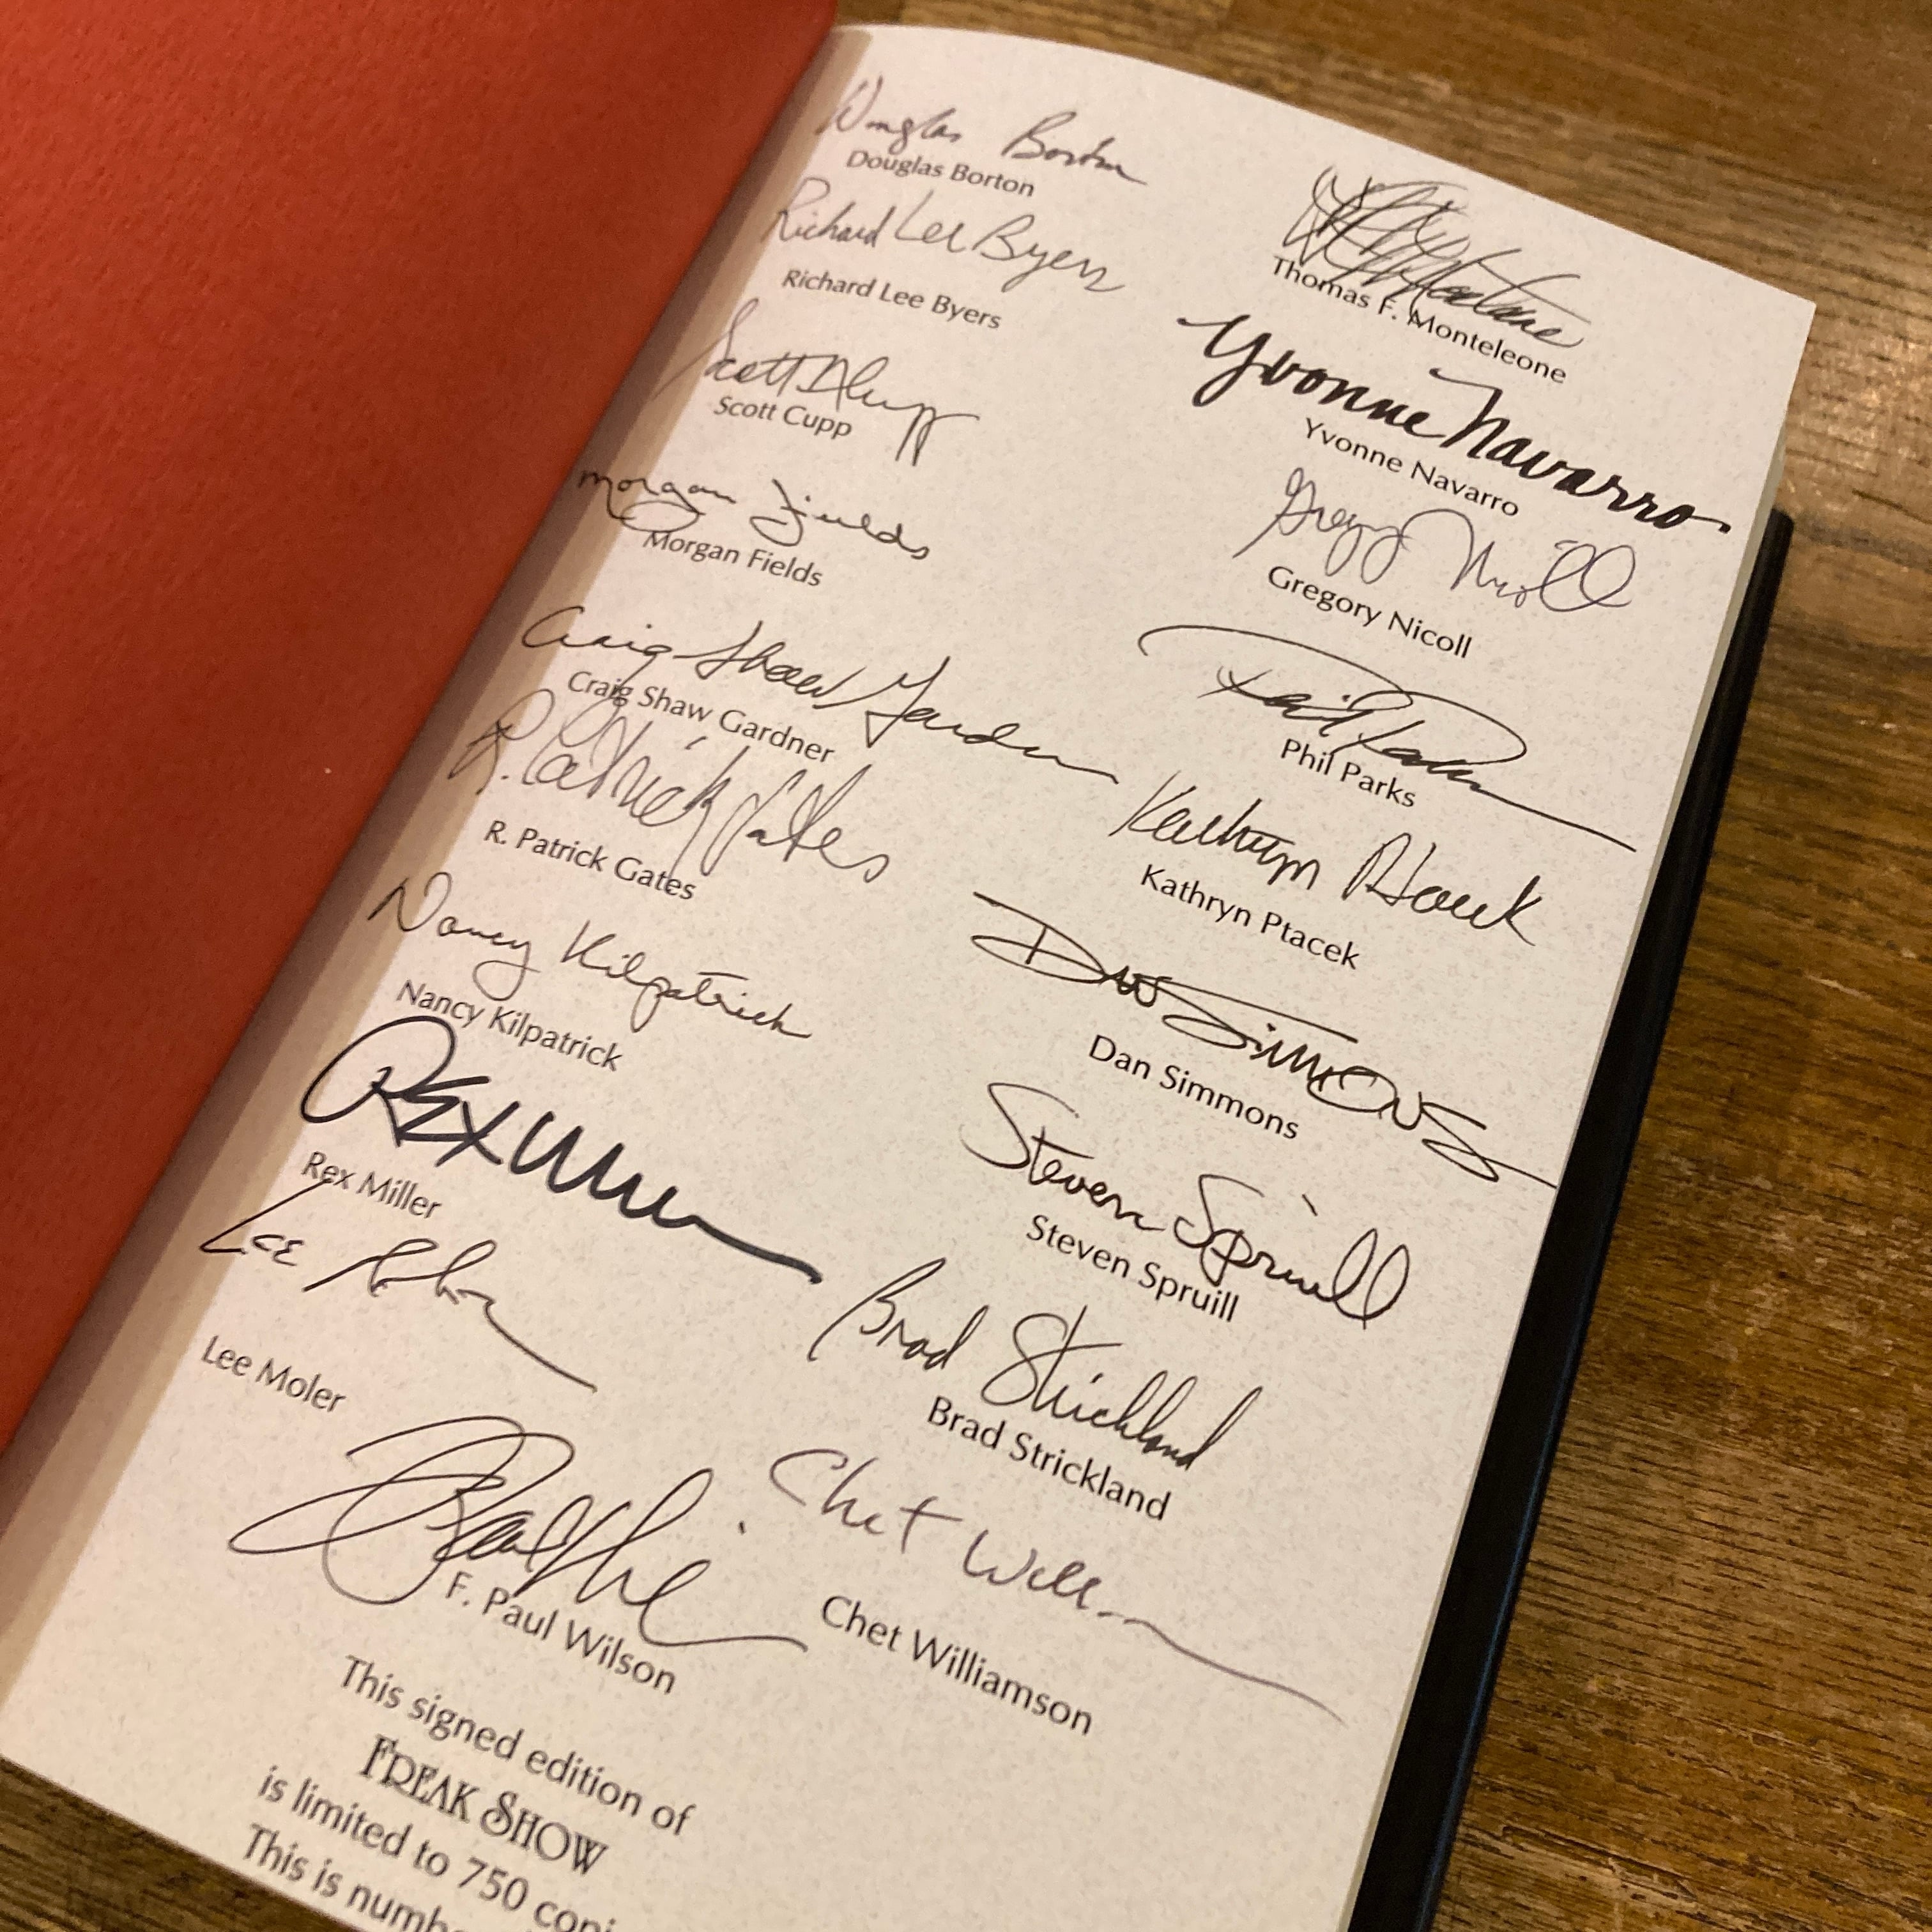 Douglas Borton
Douglas Borton
Richard Lee Byers
Richard Lee Byers
Scott A Cupp
Scott Cupp
Morgan Fields
Morgan Fields
Craig Shaw Gardner
Craig Shaw Gardner
R. Patrick Gates
R. Patrick Gates
Nancy Kilpatrick
Nancy Kilpatrick
Rex Miller
Rex Miller
Lee Moler
Lee Moler
Thomas F. Monteleone
Yvonne Navarro
Yvonne Navarro
Gregory Nicoll
Gregory Nicoll
Phil Parks
Phil Parks
Kathryn Ptacek
Kathryn Ptacek
Dan Simmons
Dan Simmons
Steven Spruill
Steven Spruill
Brad Strickland
Brad Strickland
F. Paul Wilson
Chet Williamson
This signed edition of
FREAK SHOW
is limited to 750
This is